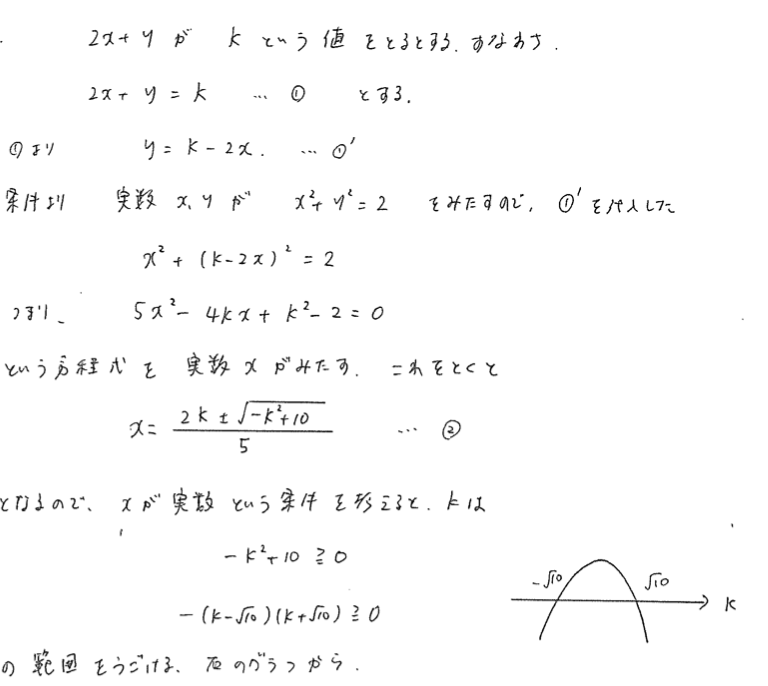 2x+y が k という値をとるとする. すなわち.
2x+y=k … ① とする.
①より y=k-2x. … ①'
条件より 実数 x, y が x²+y²=2 をみたすので, ①'を代入した
x²+(k-2x)²=2
つまり、 5x²-4kx+k²-2=0
という方程式を 実数 x がみたす. これをとくと
x= (2k±√(-k²+10))/5 … ②
となるので、 x が実数という条件を考えると. k は
-k²+10≧0
-√10 √10
k
-(k-√10)(k+√10)≧0
の範囲をうごける、右のグラフから.